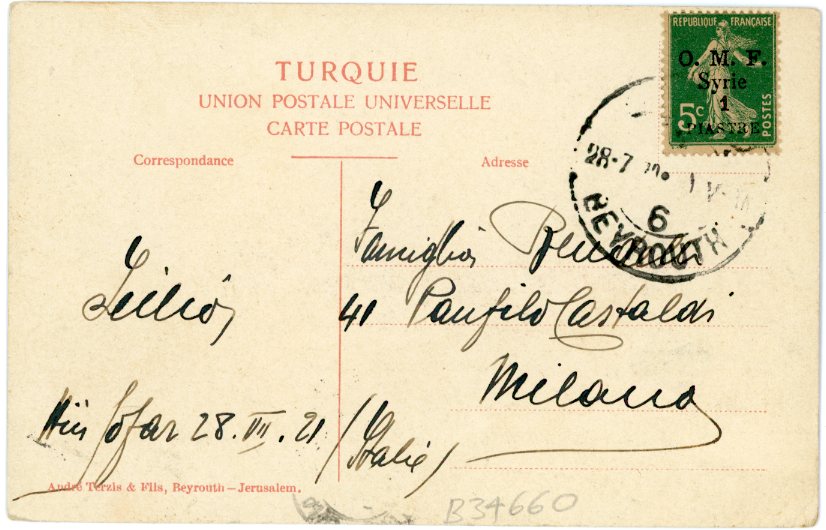 TURQUIE
UNION POSTALE UNIVERSELLE
CARTE POSTALE
REPUBLIQUE FRANÇAISE
O. M. F.
Syrie
1
PIASTRE
5c
POSTES
Correspondance
Adresse
28-7
6
BEYROUTH
Famiglia
41 Panfilo Castaldi
Milano
(Italie)
Sofar 28.VII.21
André Terzis & Fils, Beyrouth—Jerusalem.
B34660